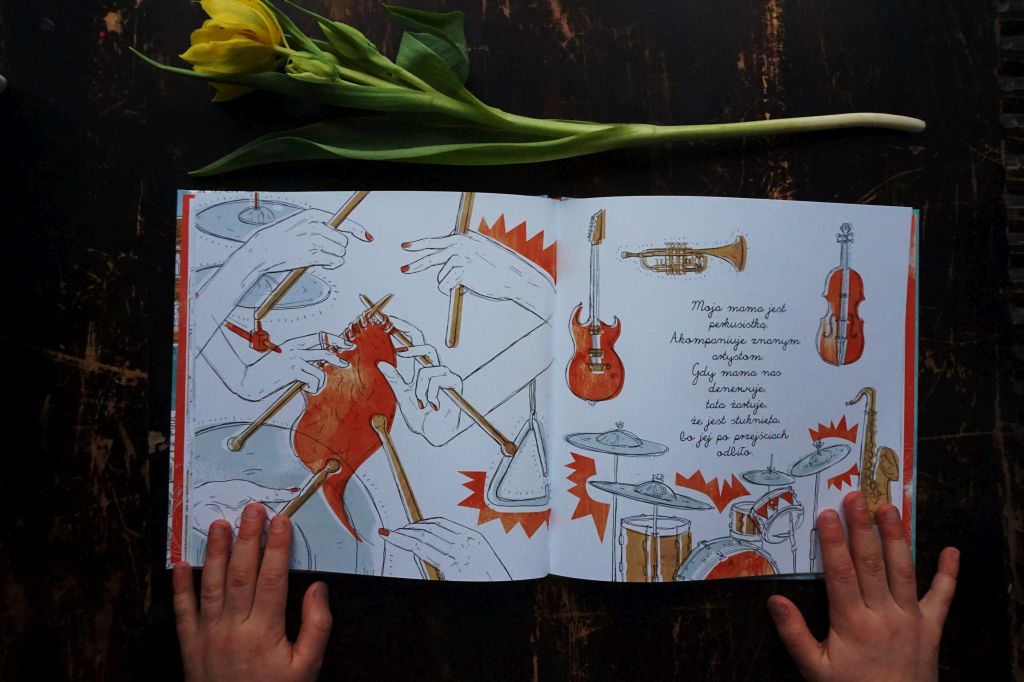 Moja mama jest
perkusistką.
Akompaniuje znanym
artystom.
Gdy mama nas
denerwuje,
tata żartuje,
że jest stuknięta,
bo jej po przejściach
odbiło.